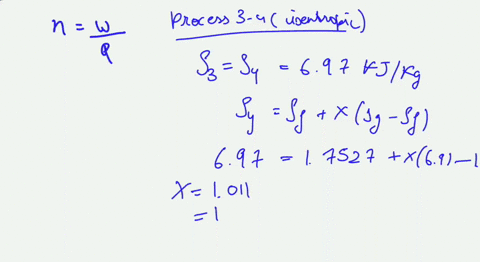 n = w/q
Process 3-4 (isentropic)
S₃ = S₄ = 6.97 KJ/Kg
S₄ = Sf + x (Sg - Sf)
6.97 = 1.7527 + x(6.91 - 1
x = 1.011
= 1